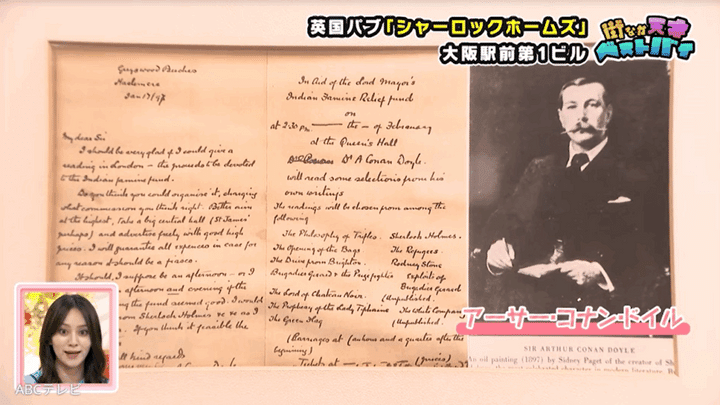 英国パブ「シャーロックホームズ」
大阪駅前第1ビル
街なか天才
ベストバイ
Greyswood Beeches
Haslemere
Jan 17/97
My dear Sir
I should be very glad if I would give a
reading in London – the proceeds to be devoted
to the Indian famine fund.
Do you think you could organise it, charging
what commission you think right. Better aim
at the highest, take a big central hall (St James'
perhaps) and advertise freely with good high
prices. I will guarantee all expenses in case for
any reason it should be a fiasco.
It should, I suppose be an afternoon – or I
afternoon and evening if the
the fund seemed good. I would
from Sherlock Holmes
if you think it feasible the
kind regards
Conan Doyle
In Aid of the Lord Mayor's
Indian Famine Relief fund
on
at 3.30 pm the – of February
at the Queen's Hall
Dr A Conan Doyle.
will read some selections from his
own writings
The readings will be chosen from among the
following
The Philosophy of Trifles. Sherlock Holmes.
The Opening of the Bags The Refugees.
The Drive from Brighton. Rodney Stone
Brigadier Gerard & the Exploits of
Brigadier Gerard
The Lord of Chateau Noir. (Unpublished.
The Prophecy of the Lady Tiphaine The White Company
The Green Flag (Unpublished.
(Carriages at (an hour and a quarter after the
beginning)
Tickets at (prices)
アーサー・コナン・ドイル
SIR ARTHUR CONAN DOYLE
An oil painting (1897) by Sidney Paget of the creator of
the most celebrated character in modern literature.
ABCテレビ